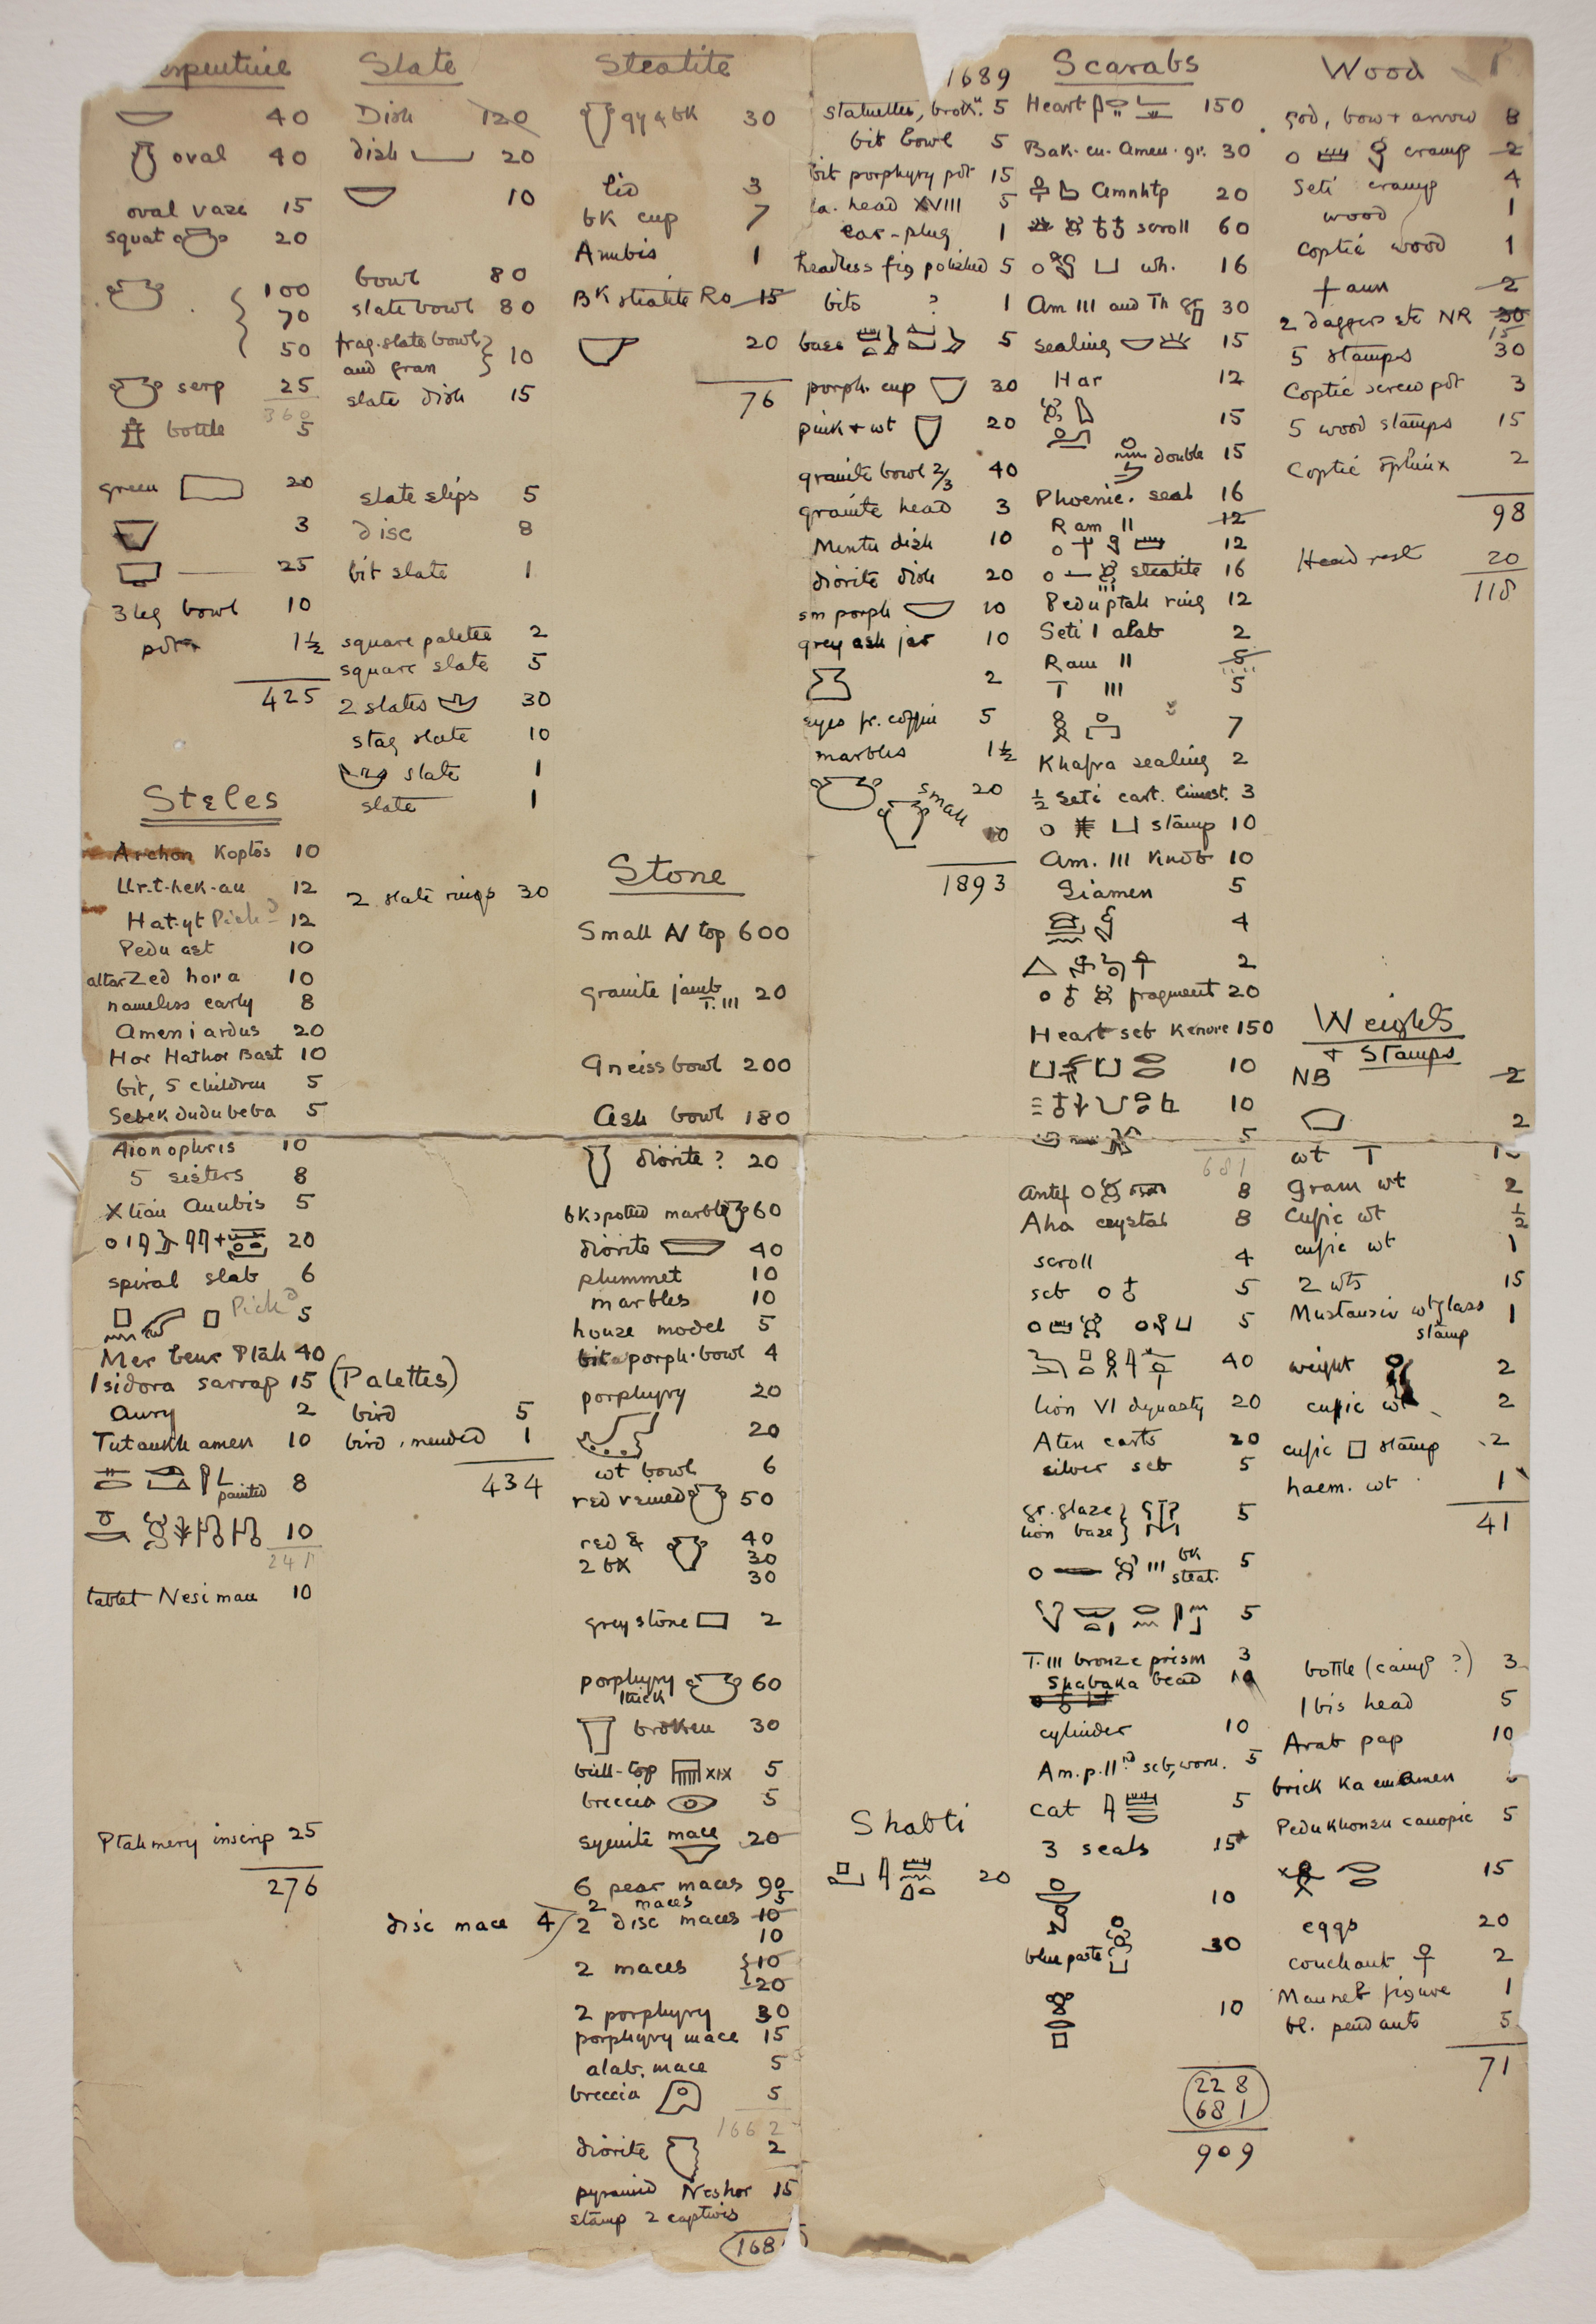 Serpentine
40
oval 40
oval vase 15
squat 20
100
70
50
serp 25
360
bottle 5
green 20
3
25
3 leg bowl 10
pot 1½
425
Steles
Archon Koptos 10
Ur.t.hek-au 12
Hat-yt Pick^d 12
Pedu ast 10
altar Zed hora 10
nameless early 8
Ameniardus 20
Hor Hathor Bast 10
bit, 5 children 5
Sebek dudu beba 5
Aionophris 10
5 sisters 8
Xtian Anubis 5
20
spiral slab 6
Pick^d 5
Mer benr Ptah 40
Isidora sarrap 15
Aury 2
Tutankhamen 10
painted 8
10
241
tablet Nesi mau 10
Ptahmery inscrip 25
276
Slate
Dish 120
dish 20
10
bowl 80
slate bowl 80
frag. slate bowl
and gran 10
slate dish 15
slate slips 5
disc 8
bit slate 1
square palette 2
square slate 5
2 slates 30
stag slate 10
slate 1
slate 1
2 slate rings 30
(Palettes)
bird 5
bird, mended 1
434
disc mace 4
Steatite
gy & bk 30
lid 3
bk cup 7
Anubis 1
BK steatite Ro 15
20
76
Stone
Small N top 600
granite jamb T.III 20
Gneiss bowl 200
Ash bowl 180
diorite ? 20
bk spotted marble 60
diorite 40
plummet 10
marbles 10
house model 5
bit porph. bowl 4
porphyry 20
20
wt bowl 6
red veined 50
red & 40
2 bk 30
30
grey stone 2
porphyry thick 60
broken 30
bull-top XIX 5
breccia 5
syenite mace 20
6 pear maces 90
2 maces 5
2 disc maces 10
10
2 maces 10
20
2 porphyry 30
porphyry mace 15
alab. mace 5
breccia 5
1662
diorite 2
pyramid Neshor 15
stamp 2 captives
168
1689
statuettes, brok^n. 5
bit bowl 5
bit porphyry pot 15
la. head XVIII 5
ear-plug 1
headless fig polished 5
bits ? 1
base 5
porph. cup 30
pink & wt 20
granite bowl 2/3 40
granite head 3
Mentu dish 10
diorite dish 20
sm porph 10
grey ash jar 10
2
eyes fr. coffin 5
marbles 1½
20
small
1893
Shabti
20
Scarabs
Heart 150
Bak. en. Amen. gr. 30
Amnhtp 20
scroll 60
wh. 16
Am III and Th 30
sealing 15
Har 12
15
double 15
Phoenic. seal 16
Ram II 12
12
steatite 16
Peduptah ring 12
Seti I alab 2
Ram II 5
T III 5
7
Khafra sealing 2
½ Seti cart. limest. 3
stamp 10
Am. III Knob 10
Siamen 5
4
2
fragment 20
Heart scb Kenure 150
10
10
5
681
Antef 8
Aha crystal 8
scroll 4
scb 5
5
40
lion VI dynasty 20
Aten carts 20
silver scb 5
gr. glaze
lion base 5
III bk steat. 5
5
T. III bronze prism 3
Shabaka bead 10
cylinder 10
Am. p. II^nd scb, worn. 5
cat 5
3 seals 15
10
blue paste 30
10
228
681
909
Wood
god, bow & arrow 8
cramp 2
Seti cramp 4
wood 1
Coptic wood 1
2
2 daggers etc NR 30
15
5 stamps 30
Coptic screw pot 3
5 wood stamps 15
Coptic sphinx 2
98
Head rest 20
118
Weights
+ Stamps
NB 2
2
wt T
gram wt 2
Cufic wt ½
cufic wt 1
2 wts 15
Mustansir wt glass stamp 1
weight 2
cufic wt 2
cufic stamp 2
haem. wt 1
41
bottle (camp ?) 3
Ibis head 5
Arab pap 10
brick Ka em Amen
Pedukhonsu canopic 5
15
eggs 20
couchant 2
figure 1
bl. pendants 5
71